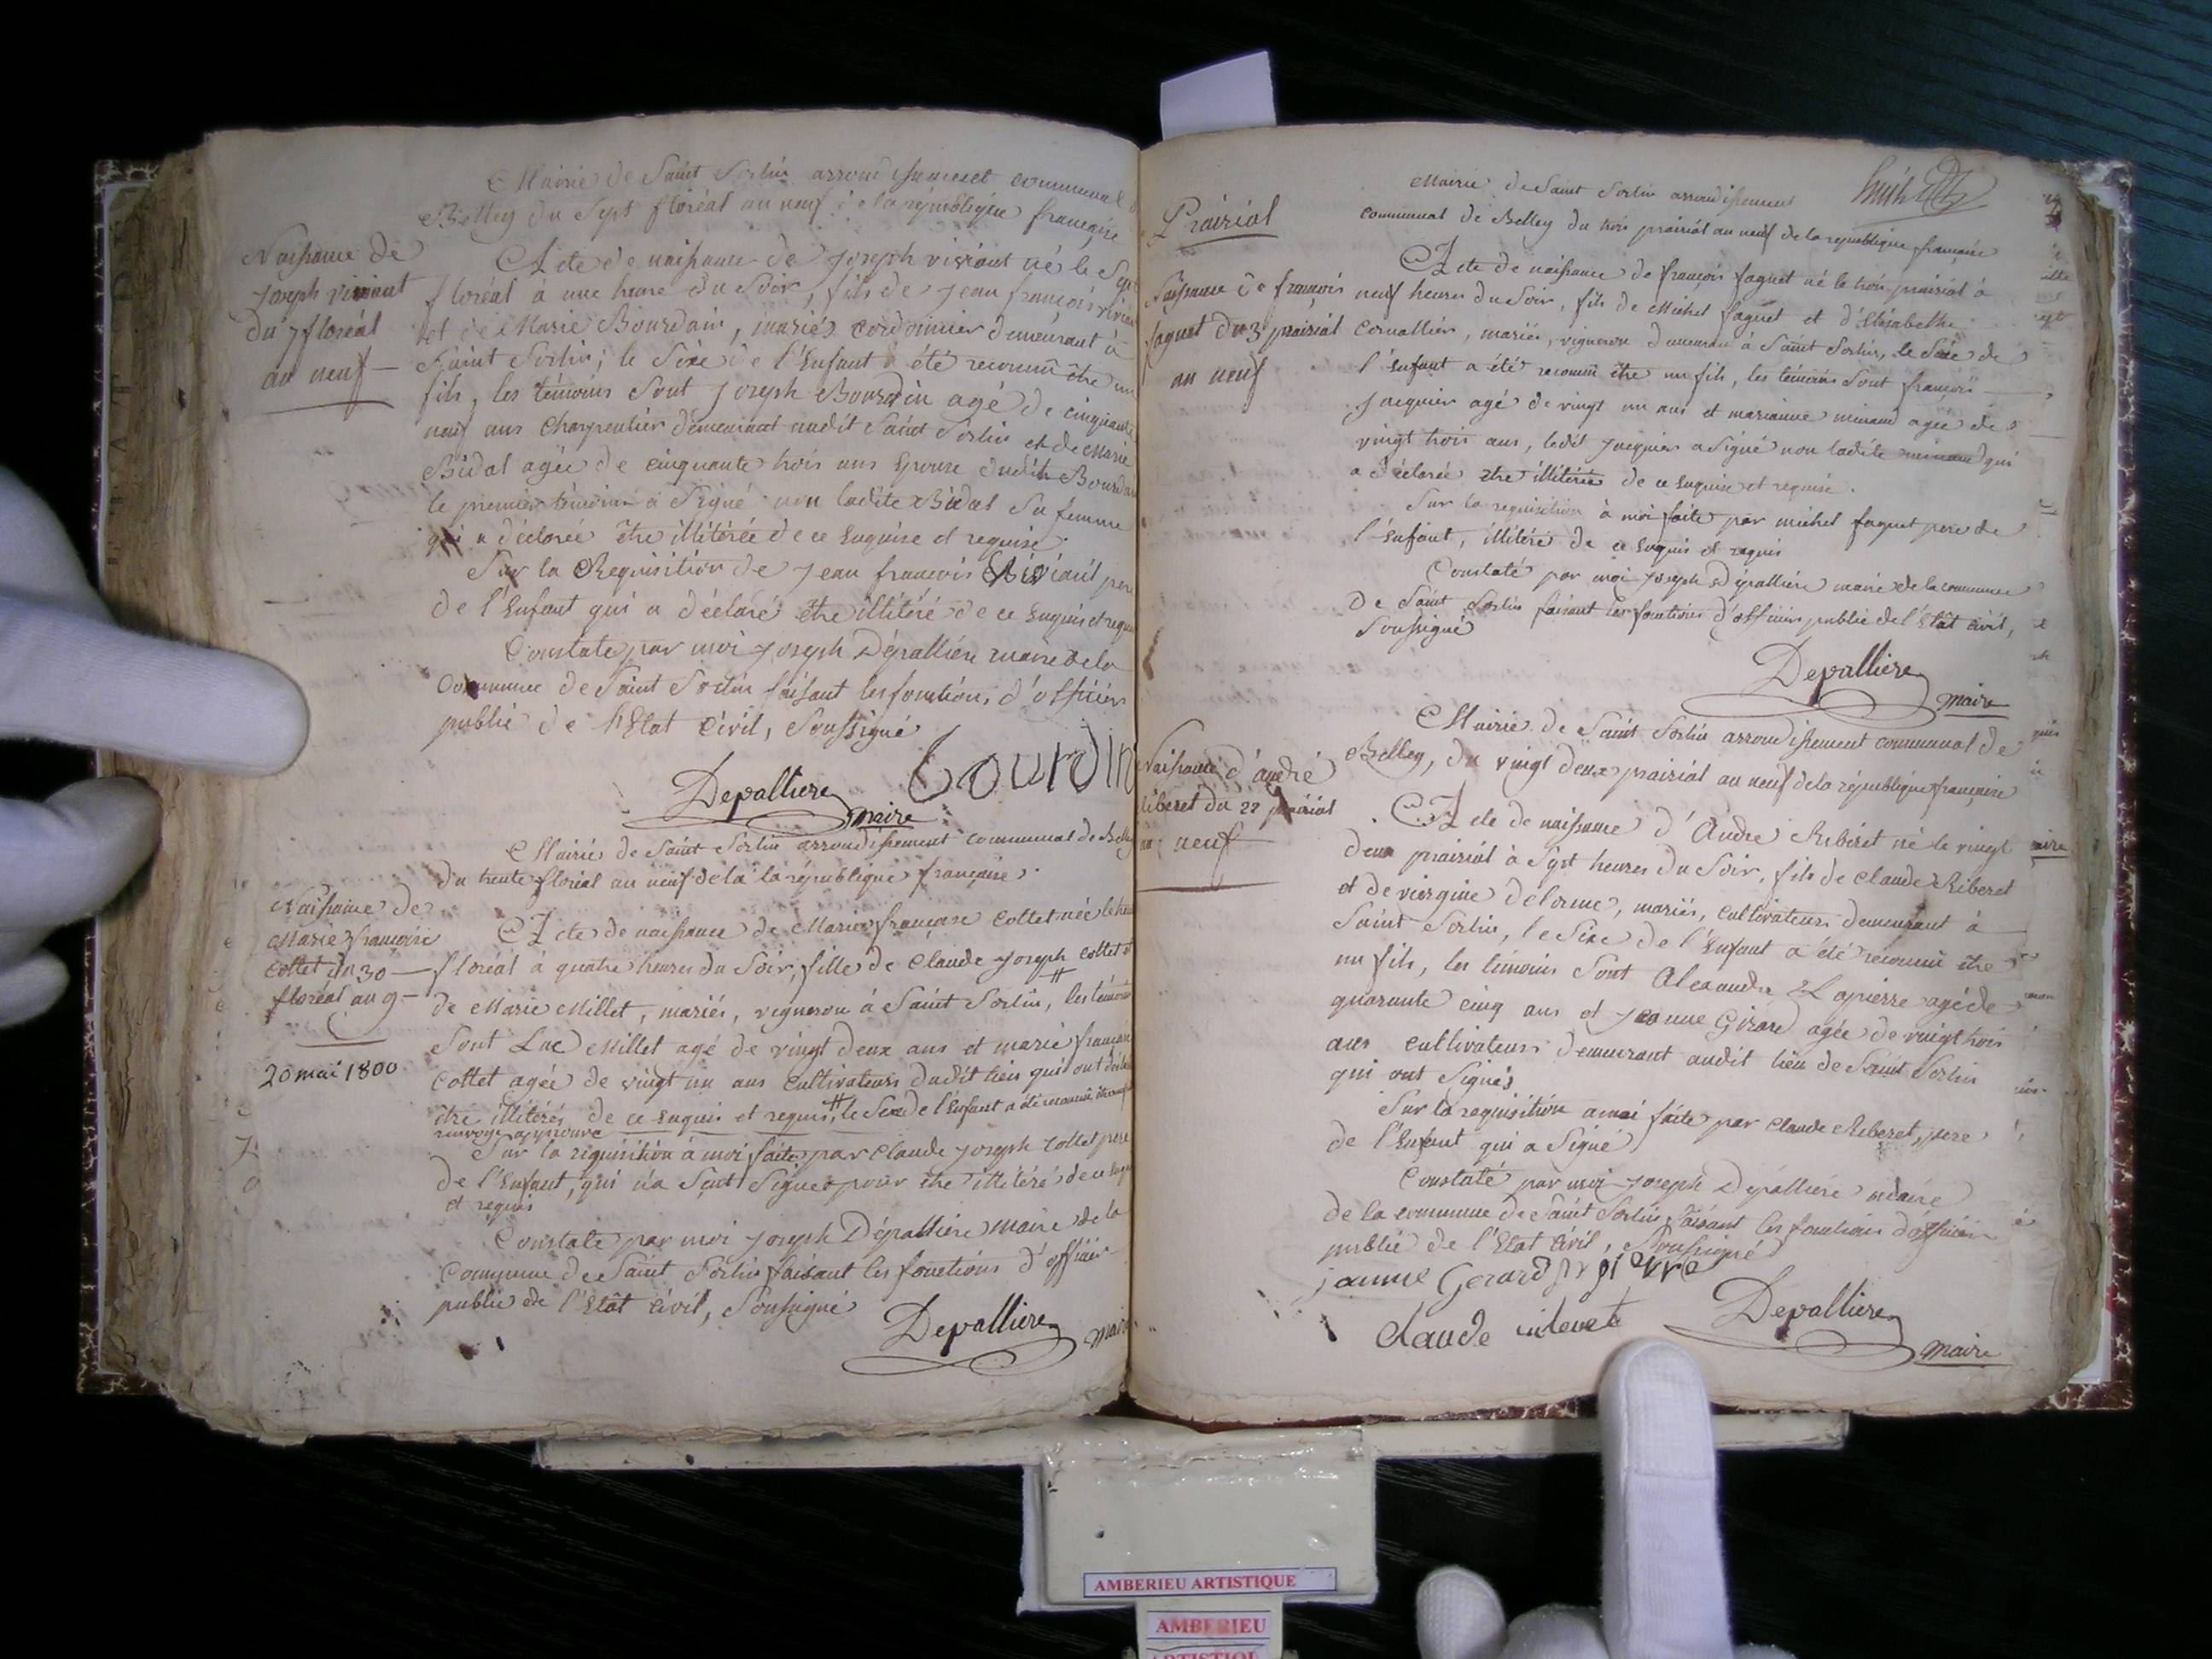 Mairie de Saint Sorlin arrondissement communal de
Belley du Sept floréal an neuf de la république française
Naissance de
Joseph viviant
du 7 floréal
an neuf
Acte de naissance de Joseph viviant né le Sept
floréal à une heure du Soir, fils de Jean françois vivian
et de Marie Bourdain, mariés cordonnier demeurant à
Saint Sorlin; le Sexe de l'Enfant a été reconnû être un
fils, les témoins Sont Joseph Bourdin agé de cinquante
neuf ans Charpentier demeurant audit Saint Sorlin et de Marie
Bidal agée de cinquante trois ans Epouse dudit Bourdin
le premier témoin a Signé non ladite Bidal Sa femme
qui a déclarée être illitérée de ce Enquise et requise.
Sur la Requisition de Jean francois Viviant pere
de l'Enfant qui a déclaré être illitéré de ce Enquis et requis
Constate par moi Joseph Dépallière maire de la
Commune de Saint Sorlin faisant les fonctions d'officier
public de l'Etat Civil, Soussigné
bourdin
Depalliere
maire
Mairie de Saint Sorlin arrondissement Communal de Belley
du trente floréal an neuf de la la république française.
Naissance de
Marie françoise
Collet du 30
floréal an 9
20 mai 1800
Acte de naissance de Marie française Collet née le trente
floréal à quatre heures du Soir, fille de Claude Joseph Collet et
de Marie Millet, mariés, vigneron à Saint Sorlin, # les témoins
Sont Luc Millet agé de vingt deux ans et marie française
Collet agée de vingt un ans Cultivateurs dudit lieu qui ont déclaré
être illitérés de ce enquis et requis, # le Sexe de l'Enfant a été reconnu être
renvoye approuvé
Sur la réquisition à moi faite par Claude Joseph Collet pere
de l'Enfant, qui n'a Signé pour être illitéré de ce Enquis
et requis
Constate par moi Joseph Dépallière maire de la
Commune de Saint Sorlin faisant les fonctions d'officier
public de l'Etât Civil, Soussigné
Depalliere
maire
Mairie de Saint Sorlin arrondissement
communal de Belley du trois prairial an neuf de la republique française
Prairial
Naissance de françois
faguet du 3 prairial
an neuf
Acte de naissance de françois faguet né le trois prairial à
neuf heures du Soir, fils de Michel faguet et d'Elisabethe
Cornallier, mariés, vigneron demeurant à Saint Sorlin, le Sexe de
l'Enfant a été reconnû être un fils, les témoins Sont françois
Jacquier agé de vingt un ans et marianne minand agée de
vingt trois ans, ledit Jacquier a Signé non ladite minand qui
a déclarée être illitérée de ce Enquise et requise.
Sur la requisition à moi faite par michel faguet pere de
l'Enfant, illitéré de ce Enquis et requis
Constaté par moi Joseph Dépalliere maire de la commune
de Saint Sorlin faisant les fonctions d'officier public de l'Etât Civil,
Soussigné
Depalliere
maire
Mairie de Saint Sorlin arrondissement communal de
Belley, du vingt deux prairial an neuf de la république française
Naissance d'andré
Riberet du 22 prairial
an neuf
Acte de naissance d'André Riberet né le vingt
deux prairial à Sept heures du Soir, fils de Claude Riberet
et de viergine delorme, mariés, cultivateurs demeurant à
Saint Sorlin, le Sexe de l'Enfant a été reconnu être
un fils, les témoins Sont Alexandre Lapierre agé de
quarante cinq ans et Jeanne Girard agée de vingt trois
ans cultivateurs demeurant audit lieu de Saint Sorlin
qui ont Signés
Sur la requisition a moi faite par Claude Riberet, pere
de l'Enfant qui a Signé
Constaté par moi Joseph Dépalliere maire
de la commune de Saint Sorlin faisant les fonctions d'officier
public de l'Etat Civil, Soussigné
jeanne Gerard
Claude
Depalliere
maire
AMBERIEU ARTISTIQUE
AMBERIEU
ARTISTIQUE